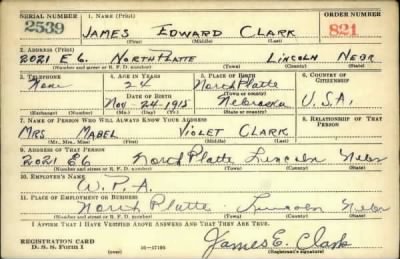 SERIAL NUMBER 1. NAME (Print) ORDER NUMBER
2539 JAMES EDWARD CLARK 821
(First) (Middle) (Last)
2. ADDRESS (Print)
2021 E 6. NORTH PLATTE LINCOLN NEBR
(Number and street or R. F. D. number) (Town) (County) (State)
3. TELEPHONE 4. AGE IN YEARS 5. PLACE OF BIRTH 6. COUNTRY OF CITIZENSHIP
None 24 North Platte
DATE OF BIRTH (Town or county)
Nov-24-1915 Nebraska U.S.A.
(Exchange) (No.) (Mo.) (Day) (Yr.) (State or country)
7. NAME OF PERSON WHO WILL ALWAYS KNOW YOUR ADDRESS 8. RELATIONSHIP OF THAT PERSON
MRS MABEL VIOLET CLARK
(Mr., Mrs., Miss) (First) (Middle) (Last)
9. ADDRESS OF THAT PERSON
2021 E6 North Platte Lincoln Nebr
(Number and street or R. F. D. number) (Town) (County) (State)
10. EMPLOYER'S NAME
W.P.A.
11. PLACE OF EMPLOYMENT OR BUSINESS
North Platte Lincoln Nebr
(Number and street or R. F. D. number) (Town) (County) (State)
I AFFIRM THAT I HAVE VERIFIED ABOVE ANSWERS AND THAT THEY ARE TRUE.
REGISTRATION CARD
D. S. S. Form 1 16-17105 James E. Clark
(Registrant's signature)